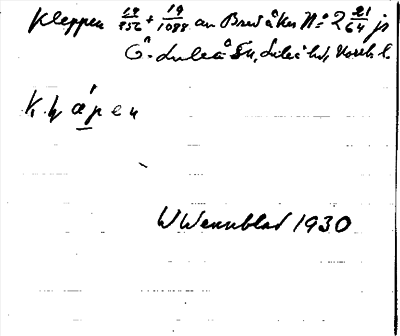 Kleppen 19/856 + 19/1088 an Bredåker No 2 21/64 je
Ö. Luleå Sn, Luleå hd, Norrb. l.
K h á p e n
W Wennblad 1930